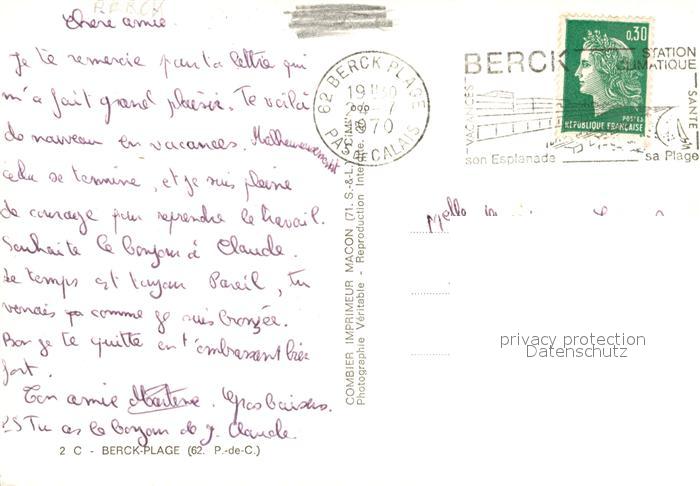 BERCK
Chere amie.
Je te remercie pour ta lettre qui
m'a fait grand plaisir. Te voilà
de nouveau en vacances. Malheureusement
cela se termine, et je suis pleine
de courage pour reprendre le travail.
Souhaite le bonjour à Claude.
Le temps est toujour Pareil, tu
verrais comme je suis bronzée.
Bon je te quitte en t'embrassant bien
fort.
Ton amie Martine. Gros baisers.
PS Tu as le bonjour de J. Claude.
2 C - BERCK-PLAGE (62. P.-de-C.)
COMBIER IMPRIMEUR MACON (71. S.-&-L.)
Photographie Véritable - Reproduction Inter
62 BERCK PLAGE
19H30
1970
PAS DE CALAIS
BERCK
STATION
CLIMATIQUE
VACANCES
SANTE
son Esplanade
sa Plage
0,30
POSTES
REPUBLIQUE FRANÇAISE
Mello
privacy protection
Datenschutz